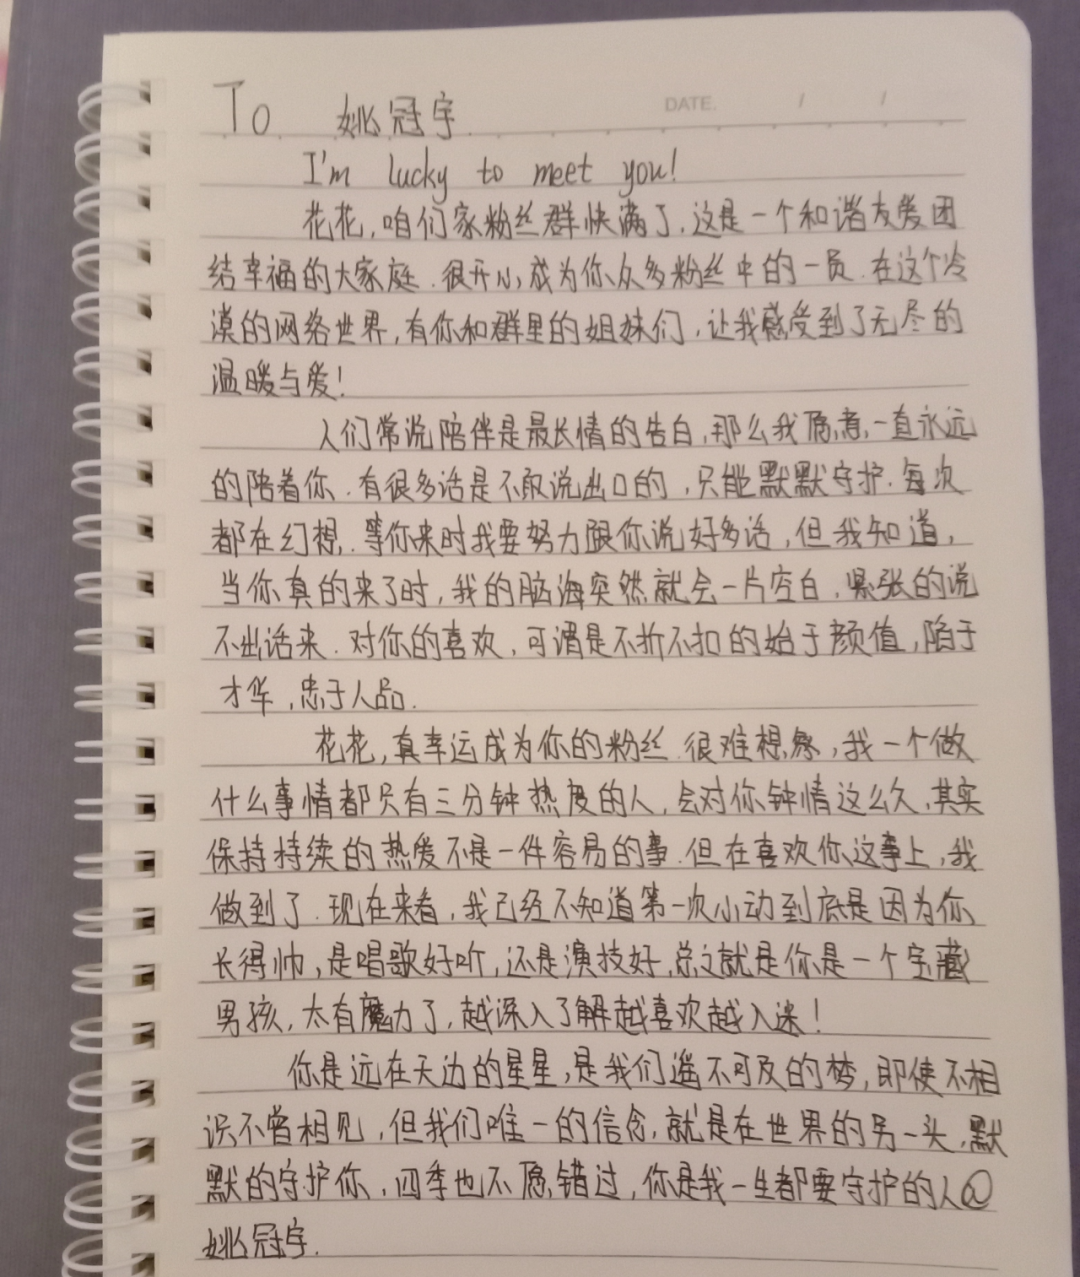 DATE.   /   /
To   姚冠宇
I'm lucky to meet you!
花花,咱们家粉丝群快满了,这是一个和谐友爱团
结幸福的大家庭.很开心成为你众多粉丝中的一员.在这个冷
漠的网络世界,有你和群里的姐妹们,让我感受到了无尽的
温暖与爱!
人们常说陪伴是最长情的告白,那么我愿意一直永远
的陪着你.有很多话是不敢说出口的,只能默默守护.每次
都在幻想.等你来时我要努力跟你说好多话,但我知道,
当你真的来了时,我的脑海突然就会一片空白,紧张的说
不出话来.对你的喜欢,可谓是不折不扣的始于颜值,陷于
才华,忠于人品.
花花,真幸运成为你的粉丝.很难想象,我一个做
什么事情都只有三分钟热度的人,会对你钟情这么久,其实
保持持续的热爱不是一件容易的事.但在喜欢你这事上,我
做到了.现在来看,我已经不知道第一次心动到底是因为你
长得帅,是唱歌好听,还是演技好,总之就是你是一个宝藏
男孩,太有魔力了,越深入了解越喜欢越入迷!
你是远在天边的星星,是我们遥不可及的梦,即使不相
识不曾相见,但我们唯一的信念,就是在世界的另一头,默
默的守护你,四季也不愿错过,你是我一生都要守护的人@
姚冠宇.